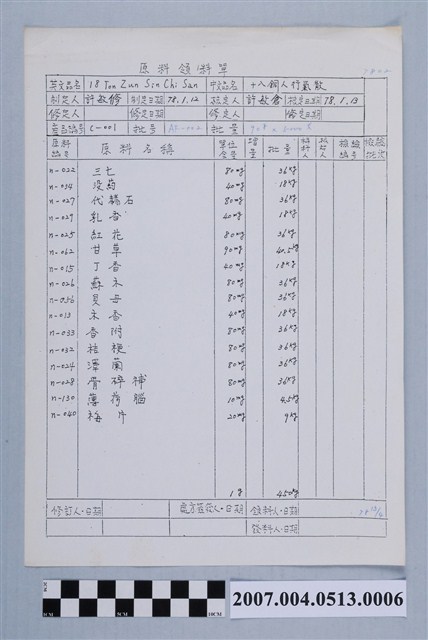 原料領料單
英文品名 18 Ton Zun Sin Chi San 中文品名 十八銅人行氣散
制定人 許敏修 制定日期 78.1.12 核定人 許敏倉 核定日期 78.1.13
修定人 修定日期 修定人 修定日期
產品編號 C-001 批号 批量
原料編号 原料名稱 單位含量 增量 批量 領料人 核對人 檢驗編号 檢驗批次
n-022 三七 80mg 36kg
n-034 没药 40mg 18kg
n-027 代赭石 80mg 36kg
n-029 乳香 40mg 18kg
n-025 紅花 80mg 36kg
n-062 甘草 90mg 40.5kg
n-015 丁香 40mg 18kg
n-026 蘇木 80mg 36kg
n-036 80mg 36kg
n-013 木香 40mg 18kg
n-033 香附 80mg 36kg
n-032 桔梗 80mg 36kg
n-024 澤蘭 80mg 36kg
n-028 骨碎補 80mg 36kg
n-130 薄荷腦 10mg 4.5kg
n-040 梅片 20mg 9kg
1g 450kg
修訂人.日期 處方簽花人.日期 領料人.日期
發料人.日期
CM
10CM
2007.004.0513.0006